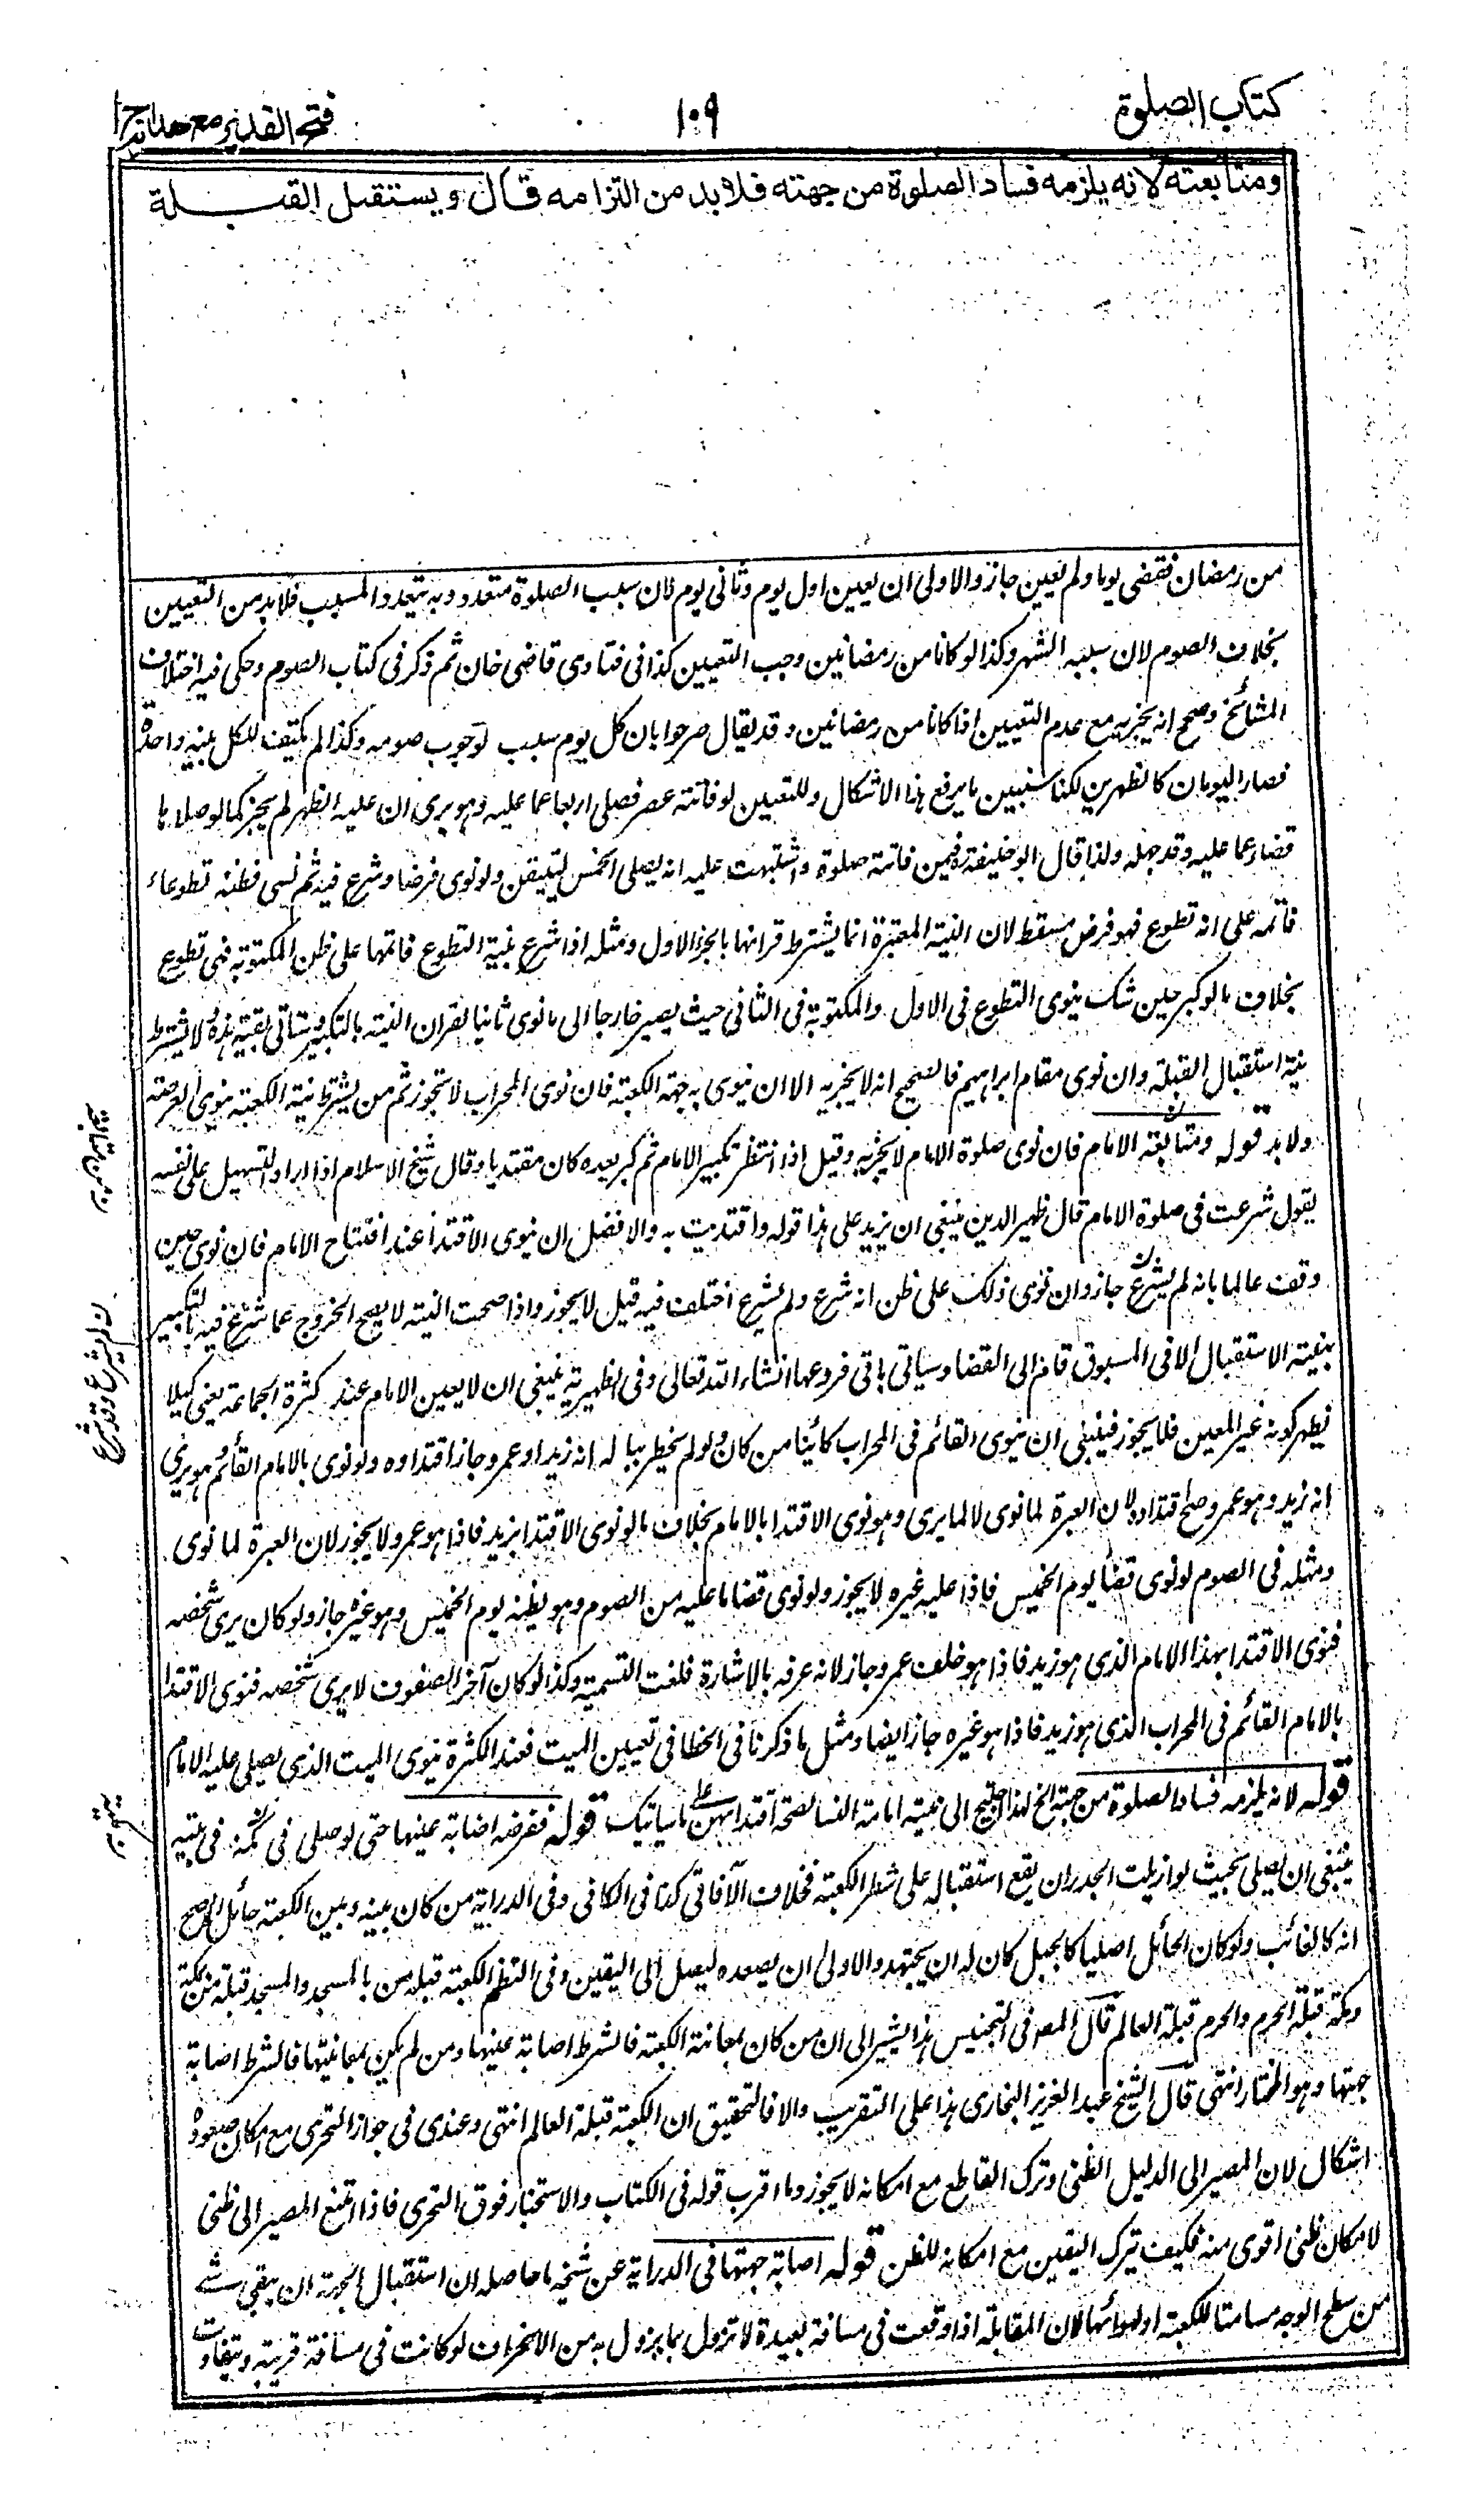 كتاب الصلوة
١٠٩
فتح القدير مع هداية ج ١
ومتابعته لانه يلزمه فساد الصلوة من جهته فلا بد من التزامه قال ويستقبل القبلة
من رمضان فقضى يوما ولم يعين جاز والاولى ان يعين اول يوم وثانى يوم لان سبب الصلوة متعدد وبه يتعدد المسبب فلا بد من التعيين
بخلاف الصوم لان سببه الشهر وكذا لو كانا من رمضانين وجب التعيين كذا فى فتاوى قاضى خان ثم ذكر فى كتاب الصوم وحكى فيه اختلاف
المشائخ وصحح انه يجزيه مع عدم التعيين اذا كانا من رمضانين وقد يقال صرحوا بان كل يوم سبب لوجوب صومه وكذا لم يكتف للكل بنية واحدة
فصار اليومان كالظهرين لكنا سنبين ما يرفع هذا الاشكال وللتعيين لو فاتته عصر فصلى اربعا عما عليه وهو يرى ان عليه الظهر لم يجز كما لو صلاها
قضاء عما عليه وقد جهله ولذا قال ابو حنيفة رح فيمن فاتته صلوة واشتبهت عليه انه يصلى الخمس ليتيقن ولو نوى فرضا وشرع فيه ثم نسى فظنه تطوعاء
فاتمه على انه تطوع فهو فرض مسقط لان النية المعتبرة انما يشترط قرانها بالجزء الاول ومثله اذا شرع بنية التطوع فاتمها على ظن المكتوبة فهى تطوع
بخلاف ما لو كبر حين شك ينوى التطوع فى الاول والمكتوبة فى الثانى حيث يصير خارجا الى ما نوى ثانيا لقران النية بالتكبير وستاتى بقية هذه ولا يشترط
نية استقبال القبلة وان نوى مقام ابراهيم فالصحيح انه لا يجزيه الا ان ينوى به جهة الكعبة فان نوى المحراب لا تجوز ثم من يشترط نية الكعبة ينوى العرصة
ولا بد قوله ومتابعة الامام فان نوى صلوة الامام لا يجزيه وقيل اذا انتظر تكبير الامام ثم كبر بعده كان مقتديا وقال شيخ الاسلام اذا اراد التسهيل على نفسه
يقول شرعت فى صلوة الامام قال ظهير الدين ينبغى ان يزيد على هذا قوله واقتديت به والافضل ان ينوى الاقتدا عند افتتاح الامام فان نوى حين
وقف عالما بانه لم يشرع جاز وان نوى ذلك على ظن انه شرع ولم يشرع اختلف فيه قيل لا يجوز واذا صحت النية لا يصح الخروج عما شرع فيه بالتكبير
بنية الاستقبال الا فى المسبوق قام الى القضا وسياتى باقى فروعها انشاء الله تعالى وفى الظهيرية ينبغى ان لا يعين الامام عند كثرة الجماعة يعنى كيلا
يظهر كونه غير المعين فلا يجوز فينبغى ان ينوى القائم فى المحراب كائنا من كان ولو لم يخطر بباله انه زيد او عمرو جاز اقتداوه ولو نوى بالامام القائم وهو يرى
انه زيد وهو عمرو صح اقتداوه لان العبرة لما نوى لا لما يرى وهو نوى الاقتدا بالامام بخلاف ما لو نوى الاقتدا بزيد فاذا هو عمرو لا يجوز لان العبرة لما نوى
ومثله فى الصوم لو نوى قضا يوم الخميس فاذا عليه غيره لا يجوز ولو نوى قضا ما عليه من الصوم وهو يظنه يوم الخميس وهو غيره جاز ولو كان يرى شخصه
فنوى الاقتدا بهذا الامام الذى هو زيد فاذا هو خلف عمرو جاز لانه عرفه بالاشارة فلغت التسمية وكذا لو كان آخر الصفوف لا يرى شخصه فنوى الاقتدا
بالامام القائم فى المحراب الذى هو زيد فاذا هو غيره جاز ايضا ومثل ما ذكرنا فى الخطا فى تعيين الميت فعند الكثرة ينوى الميت الذى يصلى عليه الامام
قوله لانه يلزمه فساد الصلوة من جهته الخ لهذا احتيج الى نية امامة النسا لصحة اقتدائهن على ما سياتيك قوله ففرضه اصابة عينها حتى لو صلى فى مكة فى بيته
ينبغى ان يصلى بحيث لو ازيلت الجدران يقع استقباله على شطر الكعبة بخلاف الآفاقى كذا فى الكافى وفى الدراية من كان بينه وبين الكعبة حائل الاصح
انه كالغائب ولو كان الحائل اصليا كالجبل كان له ان يجتهد والاولى ان يصعده ليصل الى اليقين وفى النظم الكعبة قبلة من بالمسجد والمسجد قبلة من بمكة
ومكة قبلة الحرم والحرم قبلة العالم قال المصر فى التجنيس هذا يشير الى ان من كان بمعاينة الكعبة فالشرط اصابة عينها ومن لم يكن بمعاينتها فالشرط اصابة
جهتها وهو المختار انتهى قال الشيخ عبد العزيز البخارى هذا على التقريب والا فالتحقيق ان الكعبة قبلة العالم انتهى وعندى فى جواز التحرى مع امكان صعوده
اشكال لان المصير الى الدليل الظنى وترك القاطع مع امكانه لا يجوز وما اقرب قوله فى الكتاب والاستخبار فوق التحرى فاذا امتنع المصير الى ظنى
لامكان ظنى اقوى منه فكيف يترك اليقين مع امكانه للظن قوله اصابة جهتها فى الدراية عن شيخه ما حاصله ان استقبال الجهة ان يبقى شے
من سطح الوجه مسامتا للكعبة او لهوائها لان المقابلة اذا وقعت فى مسافة بعيدة لا تزول بما يزول به من الانحراف لو كانت فى مسافة قريبة ويتفاوت
ن لم يشرع وقد شرع